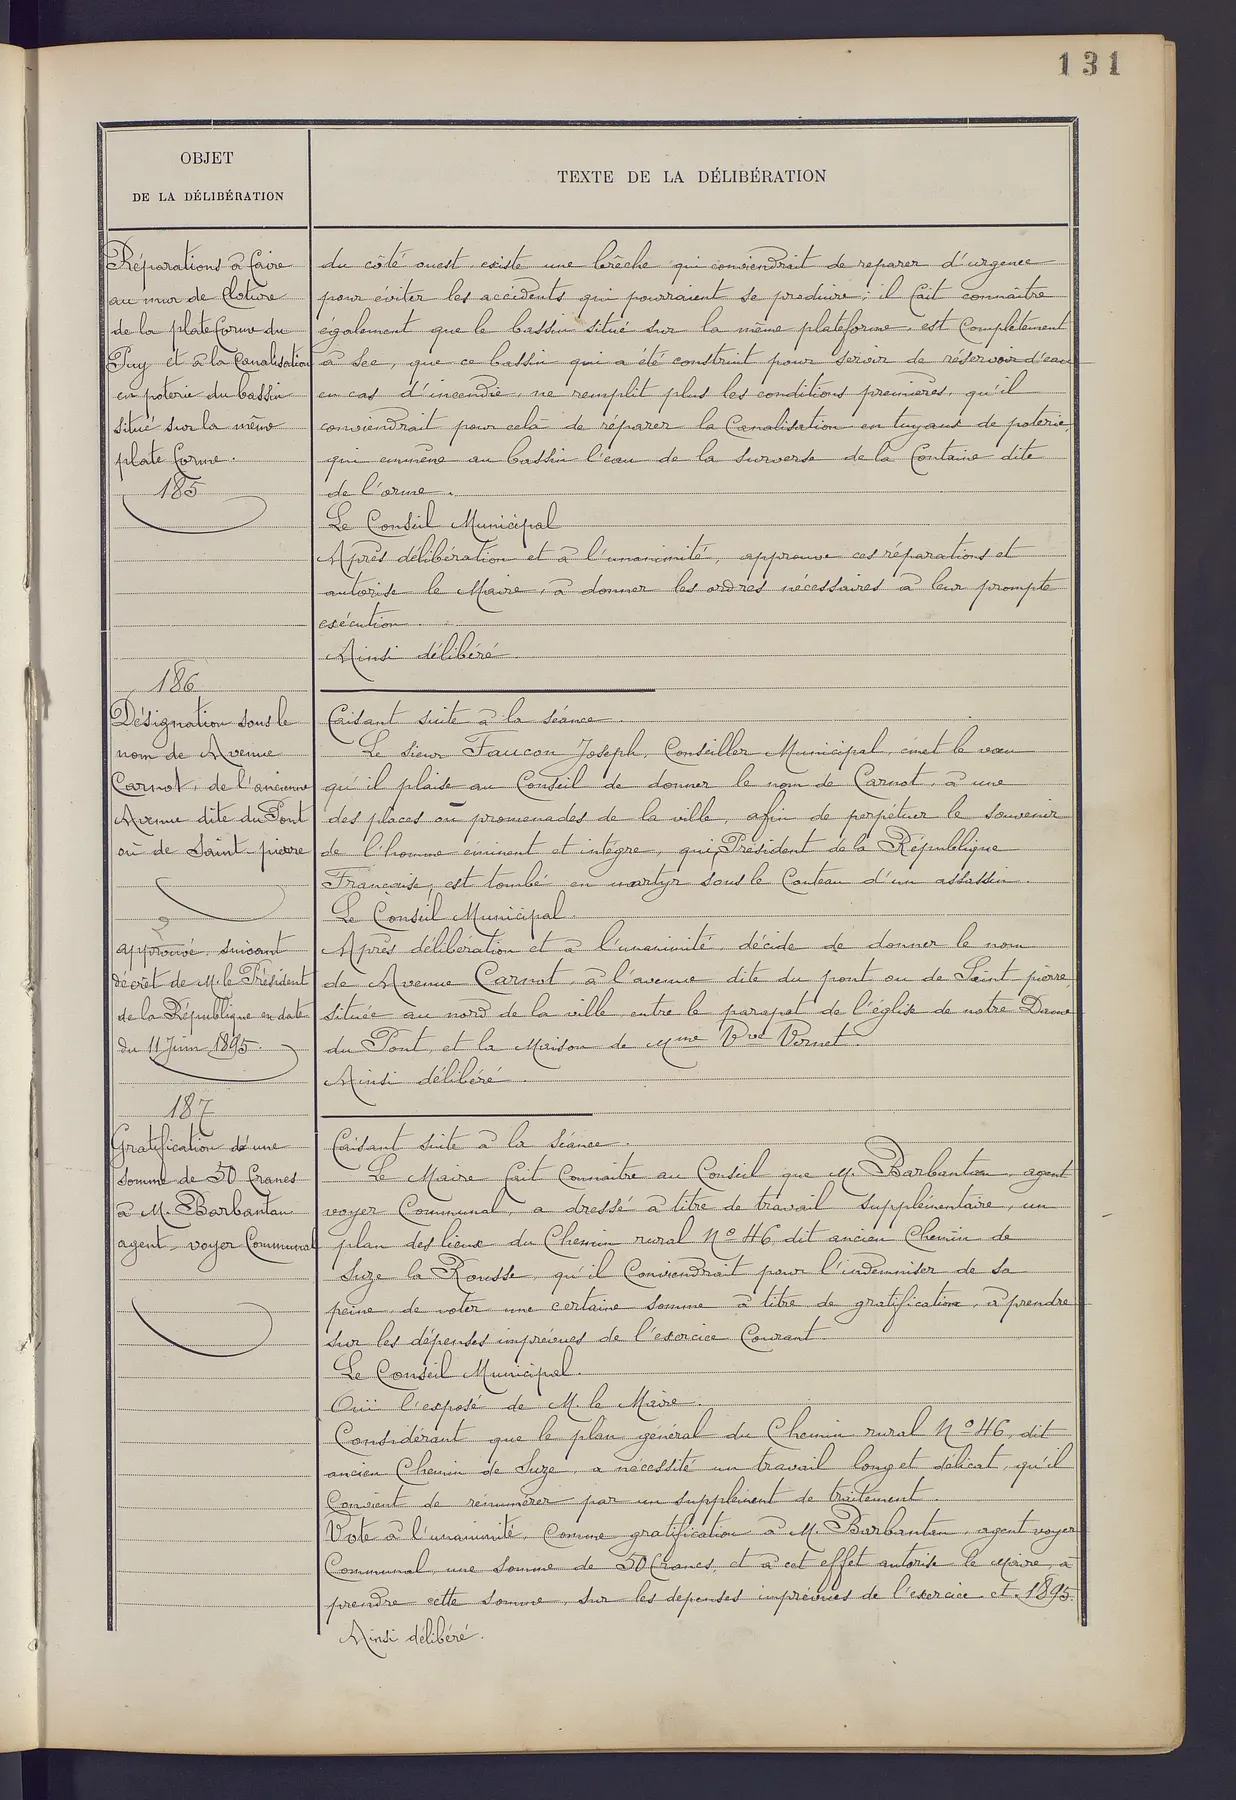 131
OBJET
DE LA DÉLIBÉRATION
TEXTE DE LA DÉLIBÉRATION
Réparations à faire
au mur de cloture
de la plateforme du
Puy et à la Canalisation
en poterie du bassin
situé sur la même
plate forme.
185
du côté ouest existe une brêche qui conviendrait de reparer d'urgence
pour éviter les accidents qui pourraient se produire; il fait connaître
également que le bassin situé sur la même plateforme est complètement
à sec, que ce bassin qui a été construit pour servir de réservoir d'eau
en cas d'incendie, ne remplit plus les conditions premières, qu'il
conviendrait pour celà de réparer la Canalisation en tuyaux de poterie,
qui emmène au bassin l'eau de la surverse de la fontaine dite
de l'orme.
Le Conseil Municipal
Après délibération et à l'unanimité, approuve ces réparations et
autorise le Maire, à donner les ordres nécessaires à leur prompte
exécution.
Ainsi délibéré.
186
Désignation sous le
nom de Avenue
Carnot, de l'ancienne
Avenue dite du Pont
ou de Saint-pierre
approuvé suivant
décret de M. le Président
de la République en date
du 11 Juin 1895.
Faisant suite à la séance.
Le sieur Faucon Joseph, Conseiller Municipal, émet le vœu
qu'il plaise au Conseil de donner le nom de Carnot, à une
des places ou promenades de la ville, afin de perpétuer le souvenir
de l'homme éminent et intègre, qui, Président de la République
Française, est tombé en martyr sous le Couteau d'un assassin.
Le Conseil Municipal.
Après délibération et à l'unanimité, décide de donner le nom
de Avenue Carnot, à l'avenue dite du pont ou de Saint-pierre,
située au nord de la ville, entre le parapet de l'église de notre Dame
du Pont, et la Maison de Mme Vve Vernet.
Ainsi délibéré.
187
Gratification d'une
somme de 50 francs
à M. Barbantan
agent-voyer Communal
Faisant suite à la séance.
Le Maire fait Connaitre au Conseil que M. Barbantan, agent
voyer Communal, a dressé à titre de travail supplémentaire, un
plan des lieux du Chemin rural No 46, dit ancien Chemin de
Suze la Rousse, qu'il Conviendrait pour l'indemniser de sa
peine, de voter une certaine somme à titre de gratification, à prendre
sur les dépenses imprévues de l'exercice Courant.
Le Conseil Municipal.
Ouï l'exposé de M. le Maire.
Considérant que le plan général du Chemin rural No 46, dit
ancien Chemin de Suze, a nécessité un travail long et délicat, qu'il
Convient de rénumérer par un supplément de traitement.
Vote à l'unanimité, Comme gratification à M. Barbantan, agent voyer
Communal, une somme de 50 francs, et à cet effet autorise le Maire, à
prendre cette somme, sur les dépenses imprévues de l'exercice ct. 1895.
Ainsi délibéré.